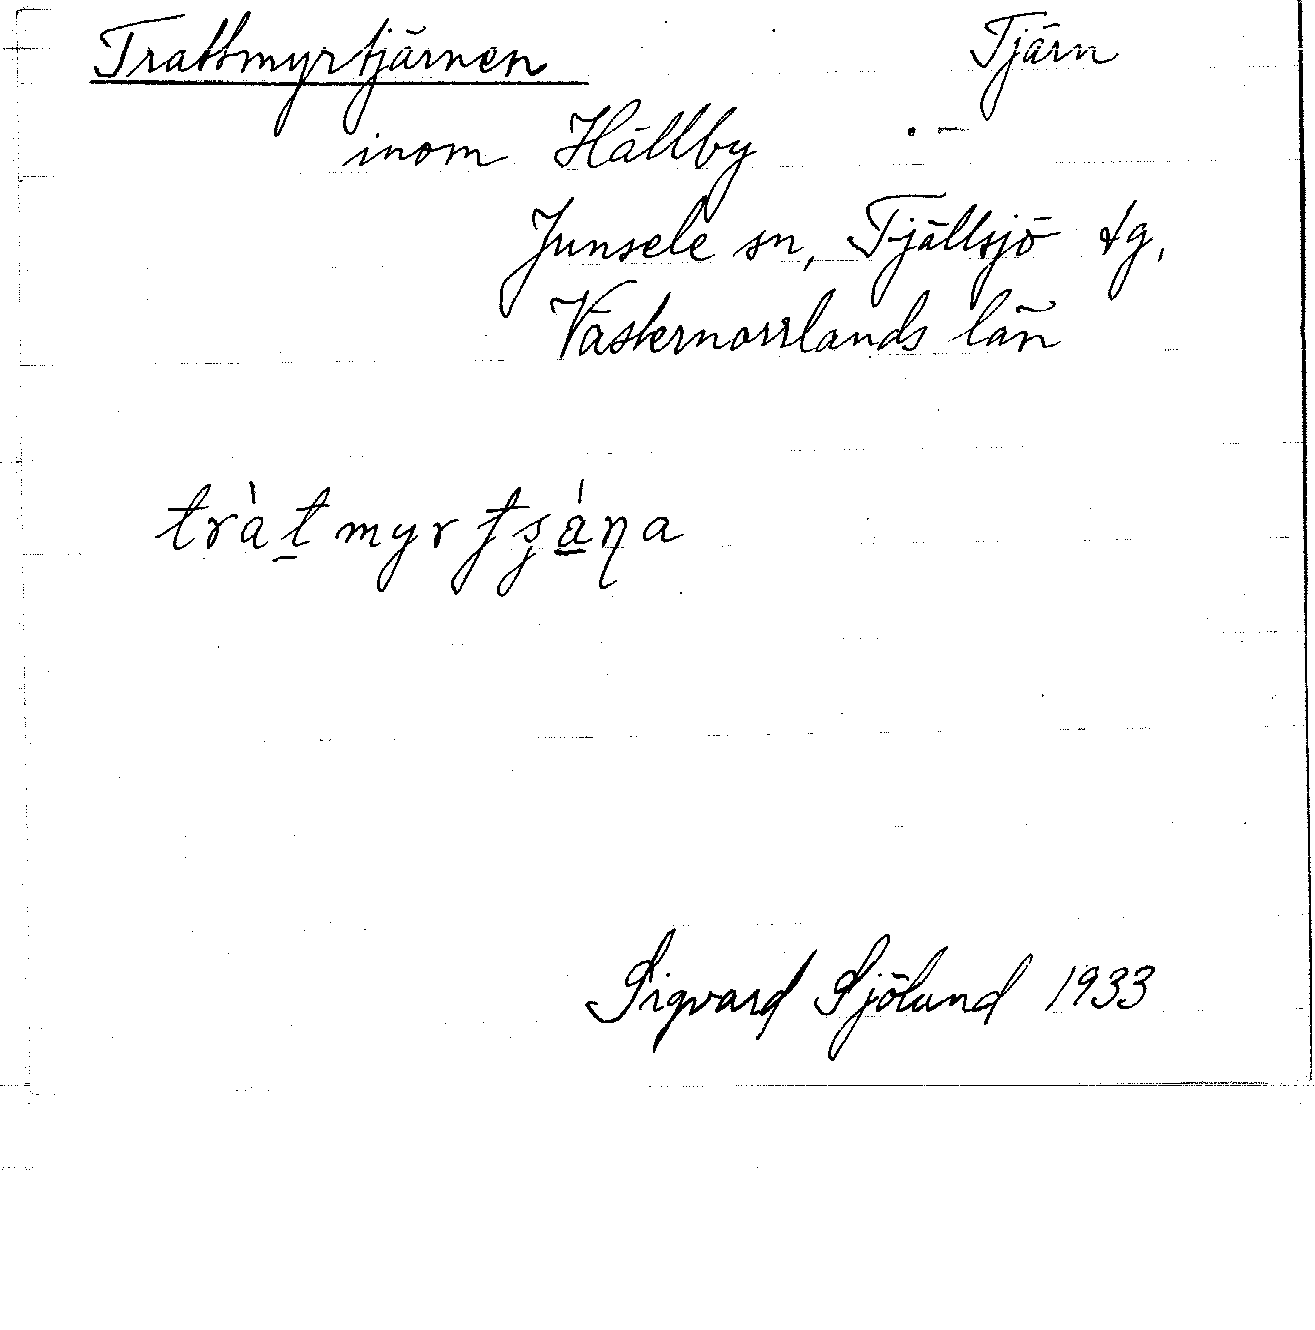 Trattmyrtjärnen Tjärn
inom Hällby
Junsele sn, Fjällsjö tg,
Västernorrlands län
trà̀t̠myrtʂá̠ɳa
Sigvard Sjölund 1933